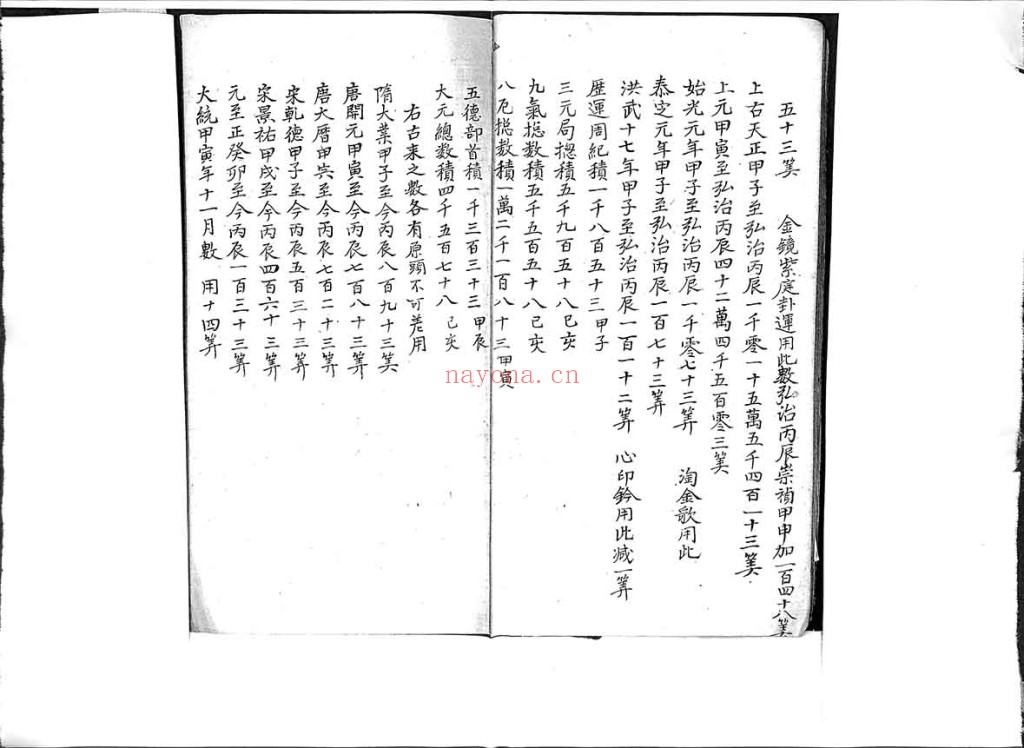 五十三筭　金鏡紫庭卦運用此數弘治丙辰崇禎甲申加一百四十八筭
上古天正甲子至弘治丙辰一千零一十五萬五千四百一十三筭
上元甲寅至弘治丙辰四十二萬四千五百零三筭
始光元年甲子至弘治丙辰一千零七十三筭　淘金歌用此
泰定元年甲子至弘治丙辰一百七十三筭
洪武十七年甲子至弘治丙辰一百一十二筭　心印鈐用此减一筭
歷運周紀積一千八百五十三甲子
三元局揔積五千九百五十八己亥
九氣揔數積五千五百五十八己亥
八厄揔數積一萬二千一百八十三甲寅
五德部首積一千三百三十三甲辰
大元總數積四千五百七十八己亥
右古来之數各有原頭不可差用
隋大業甲子至今丙辰八百九十三筭
唐開元甲寅至今丙辰七百八十三筭
唐大曆甲寅至今丙辰七百二十三筭
宋乾德甲子至今丙辰五百三十三筭
宋景祐甲戌至今丙辰四百六十三筭
元至正癸卯至今丙辰一百三十三筭
大統甲寅年十一月數　用十四筭
nayona.cn